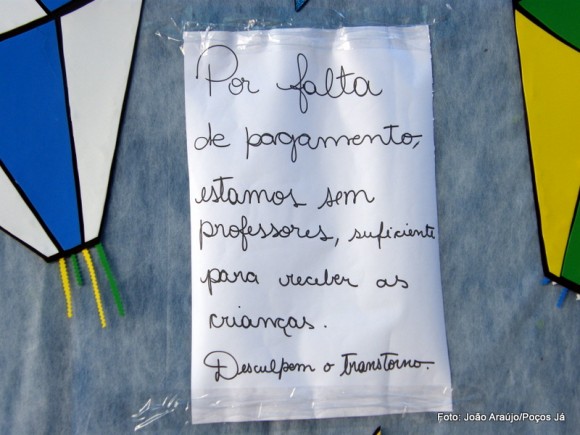 Por falta
de pagamento,
estamos sem
professores, suficiente
para receber as
crianças.
Desculpem o transtorno.
Foto: João Araújo/Poços Já